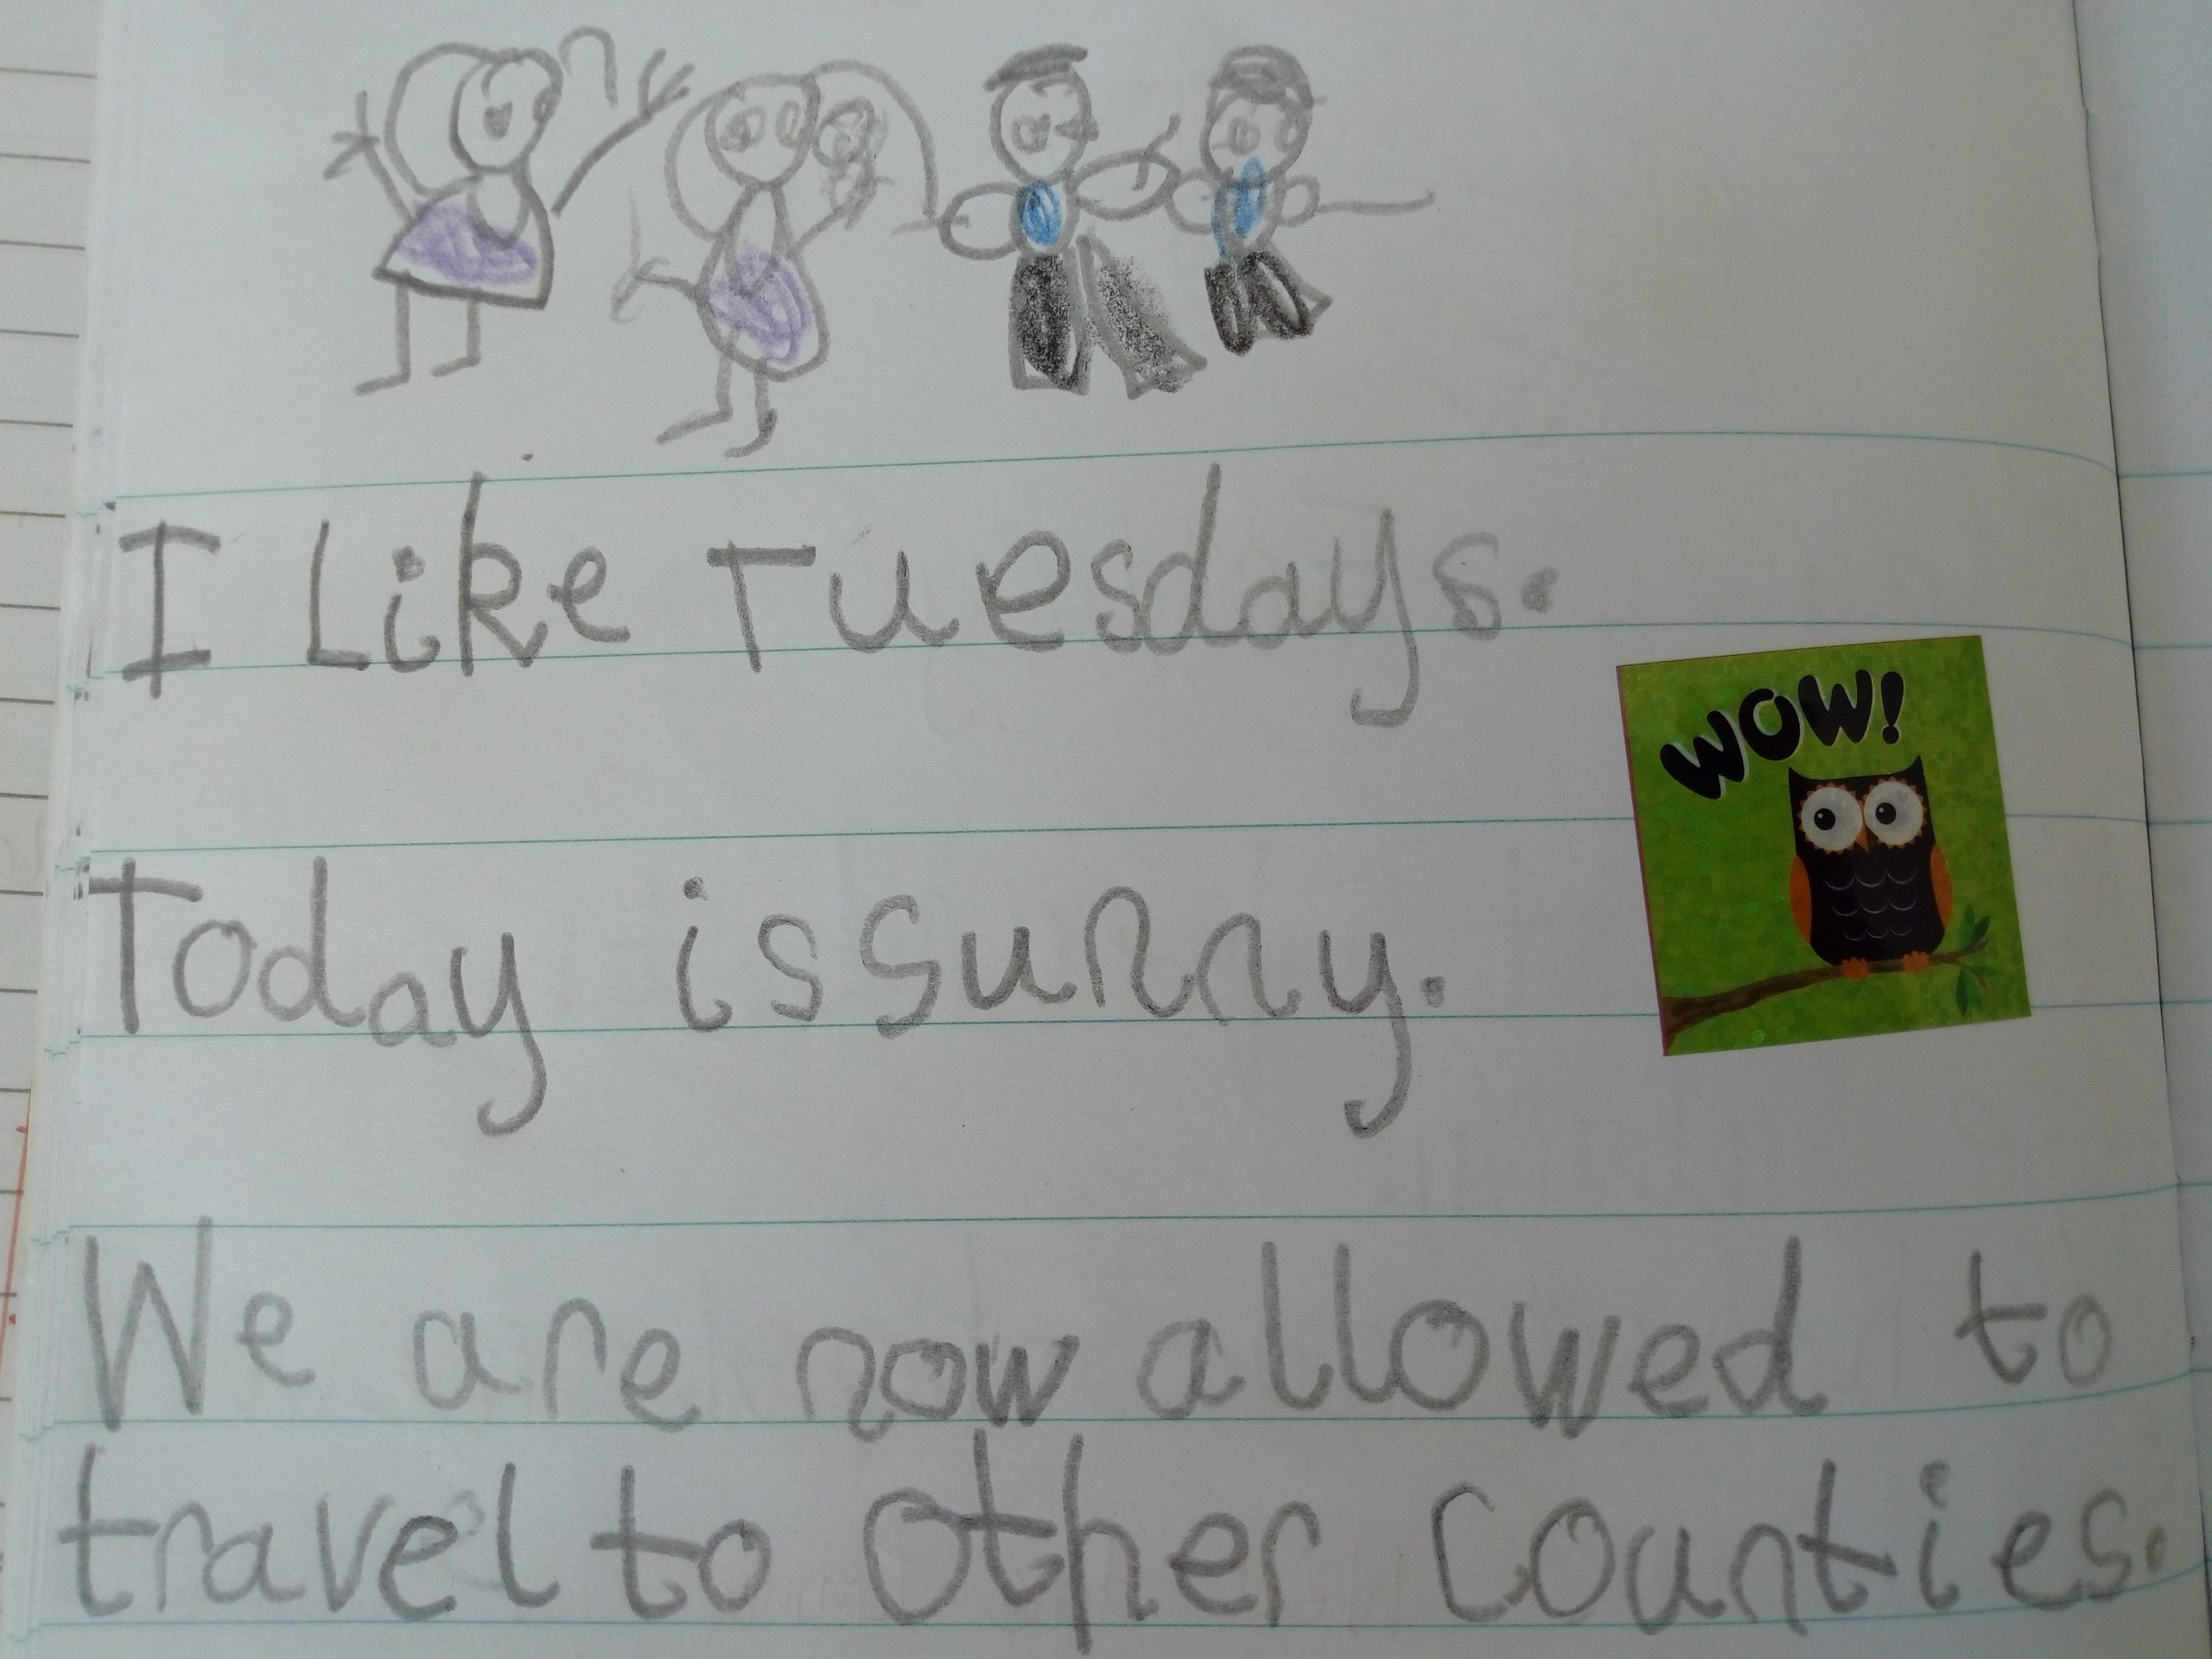 I Like Tuesdays.
WOW!
Today is sunny.
We are now allowed to
travel to other counties.